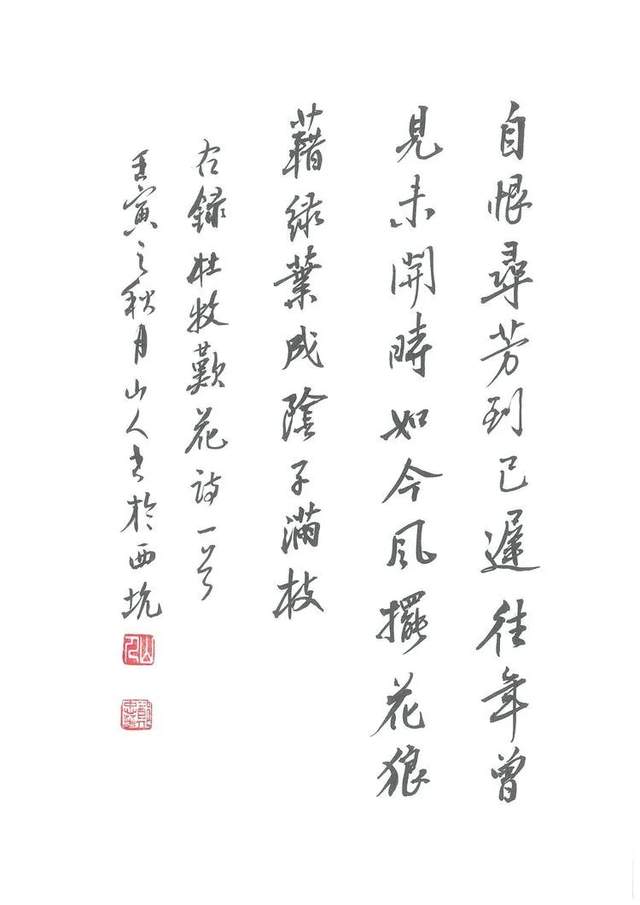 自恨尋芳到已遲往年曾
見未開時如今風擺花狼
藉綠葉成陰子滿枝
右錄杜牧歎花詩一首
壬寅之秋月山人書於西坑
山人